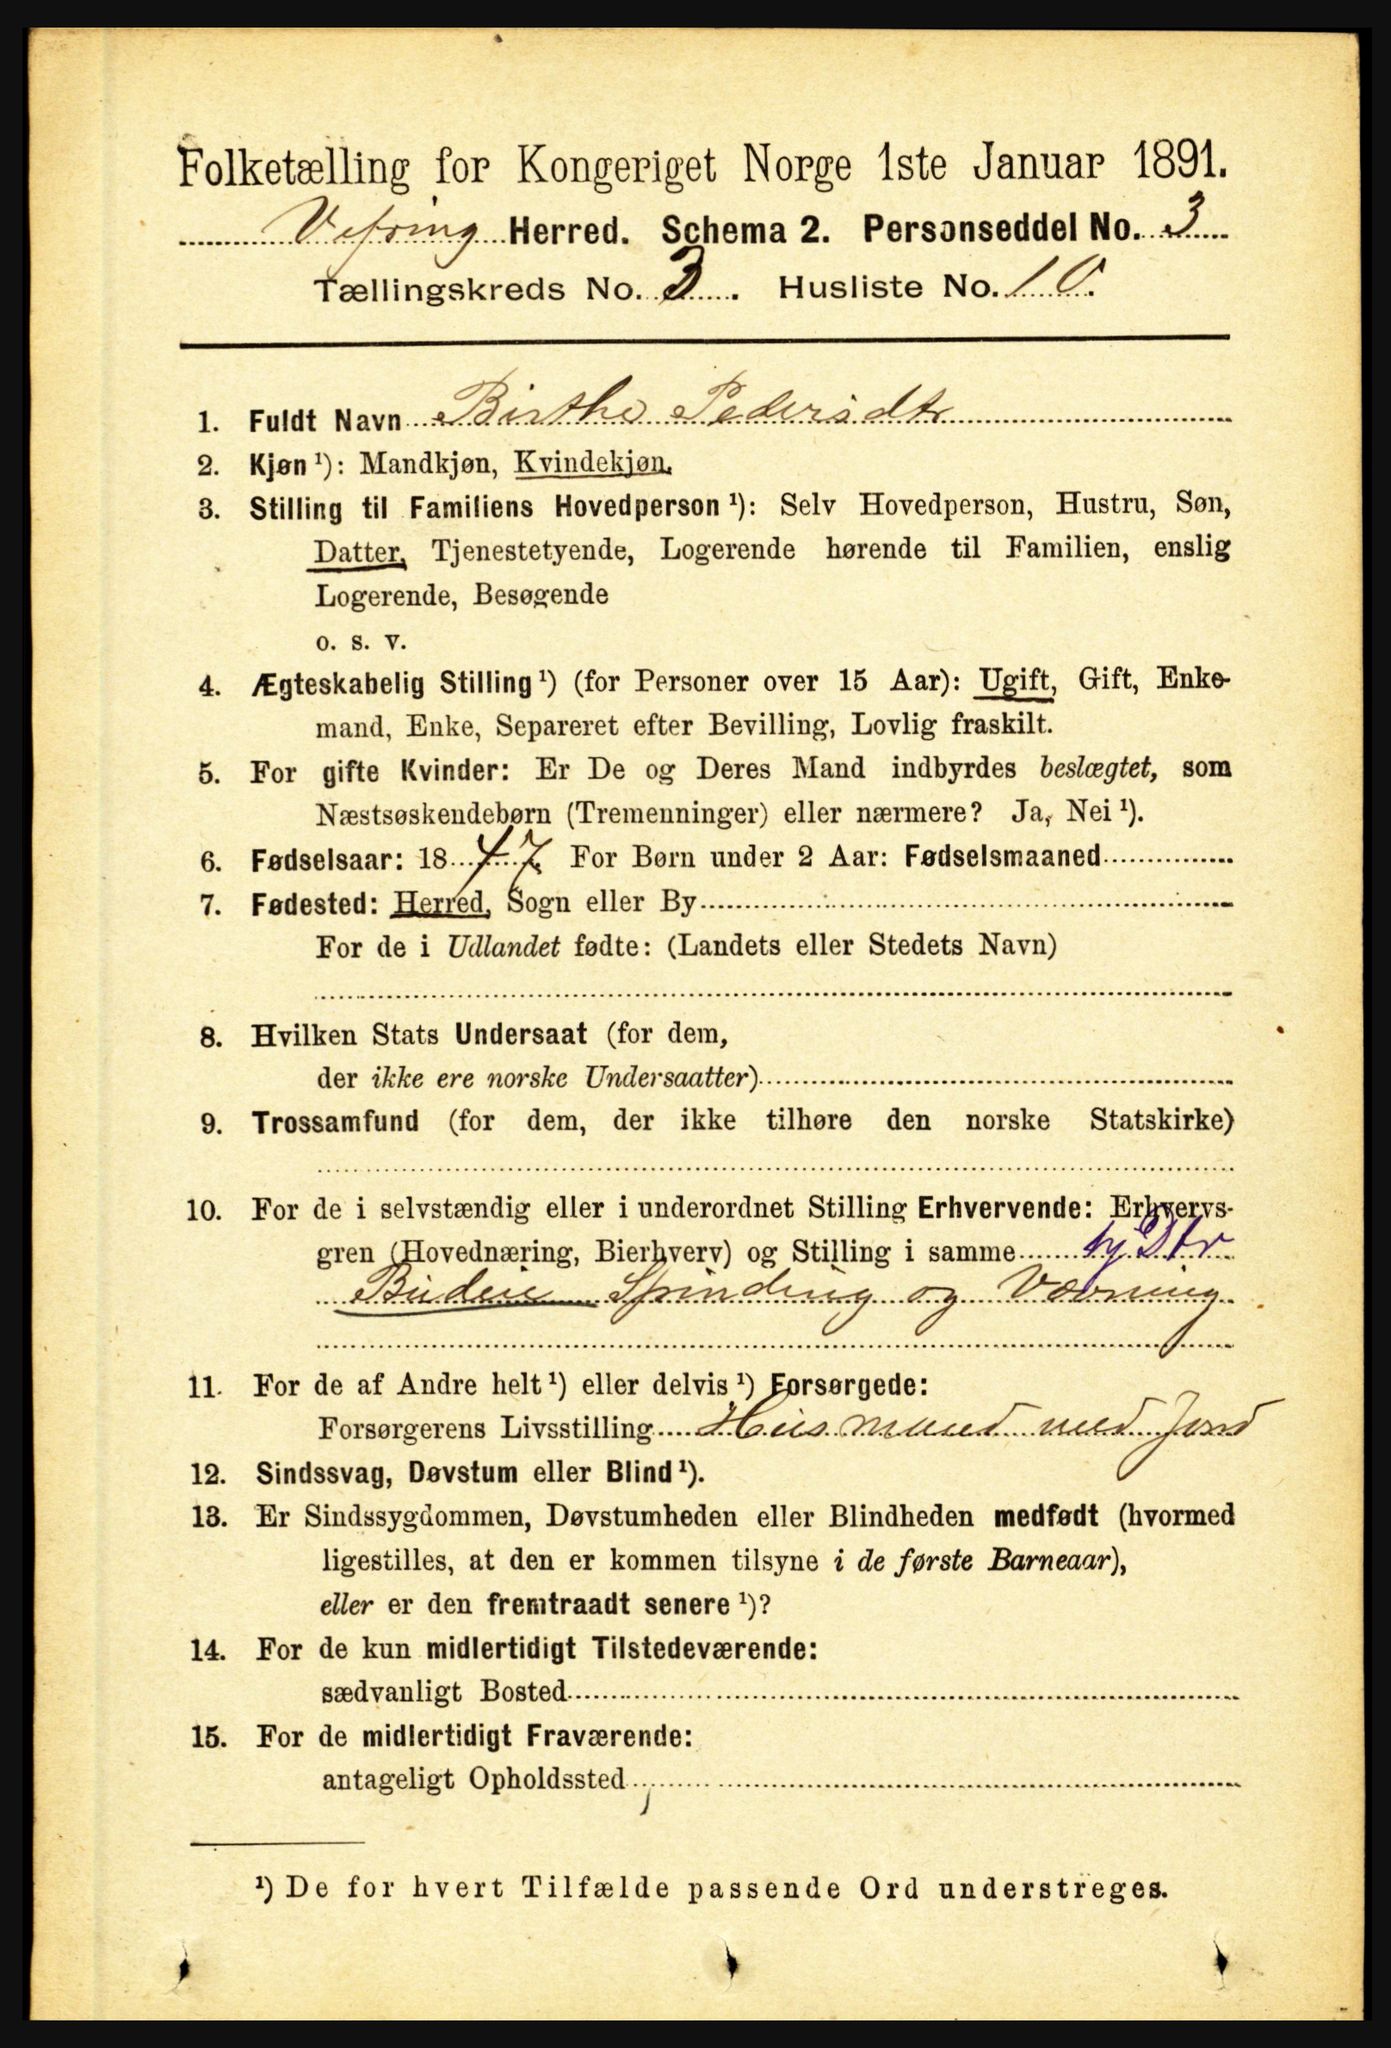 Folketælling for Kongeriget Norge 1ste Januar 1891.
Vefring Herred. Schema 2. Personseddel No. 3
Tællingskreds No. 3. Husliste No. 10.
1. Fuldt Navn Birthe Pedersdtr
2. Kjøn ¹): Mandkjøn, Kvindekjøn.
3. Stilling til Familiens Hovedperson ¹): Selv Hovedperson, Hustru, Søn,
Datter, Tjenestetyende, Logerende hørende til Familien, enslig
Logerende, Besøgende
o. s. v.
4. Ægteskabelig Stilling ¹) (for Personer over 15 Aar): Ugift, Gift, Enke-
mand, Enke, Separeret efter Bevilling, Lovlig fraskilt.
5. For gifte Kvinder: Er De og Deres Mand indbyrdes beslægtet, som
Næstsøskendebørn (Tremenninger) eller nærmere? Ja, Nei ¹).
6. Fødselsaar: 1847. For Børn under 2 Aar: Fødselsmaaned
7. Fødested: Herred, Sogn eller By
For de i Udlandet fødte: (Landets eller Stedets Navn)
8. Hvilken Stats Undersaat (for dem,
der ikke ere norske Undersaatter)
9. Trossamfund (for dem, der ikke tilhøre den norske Statskirke)
10. For de i selvstændig eller i underordnet Stilling Erhvervende: Erhvervs-
gren (Hovednæring, Bierhverv) og Stilling i samme
Budeie Spinding og Vævning
11. For de af Andre helt ¹) eller delvis ¹) Forsørgede:
Forsørgerens Livsstilling Husmand med Jord
12. Sindssvag, Døvstum eller Blind ¹).
13. Er Sindssygdommen, Døvstumheden eller Blindheden medfødt (hvormed
ligestilles, at den er kommen tilsyne i de første Barneaar),
eller er den fremtraadt senere ¹)?
14. For de kun midlertidigt Tilstedeværende:
sædvanligt Bosted
15. For de midlertidigt Fraværende:
antageligt Opholdssted
¹) De for hvert Tilfælde passende Ord understreges.